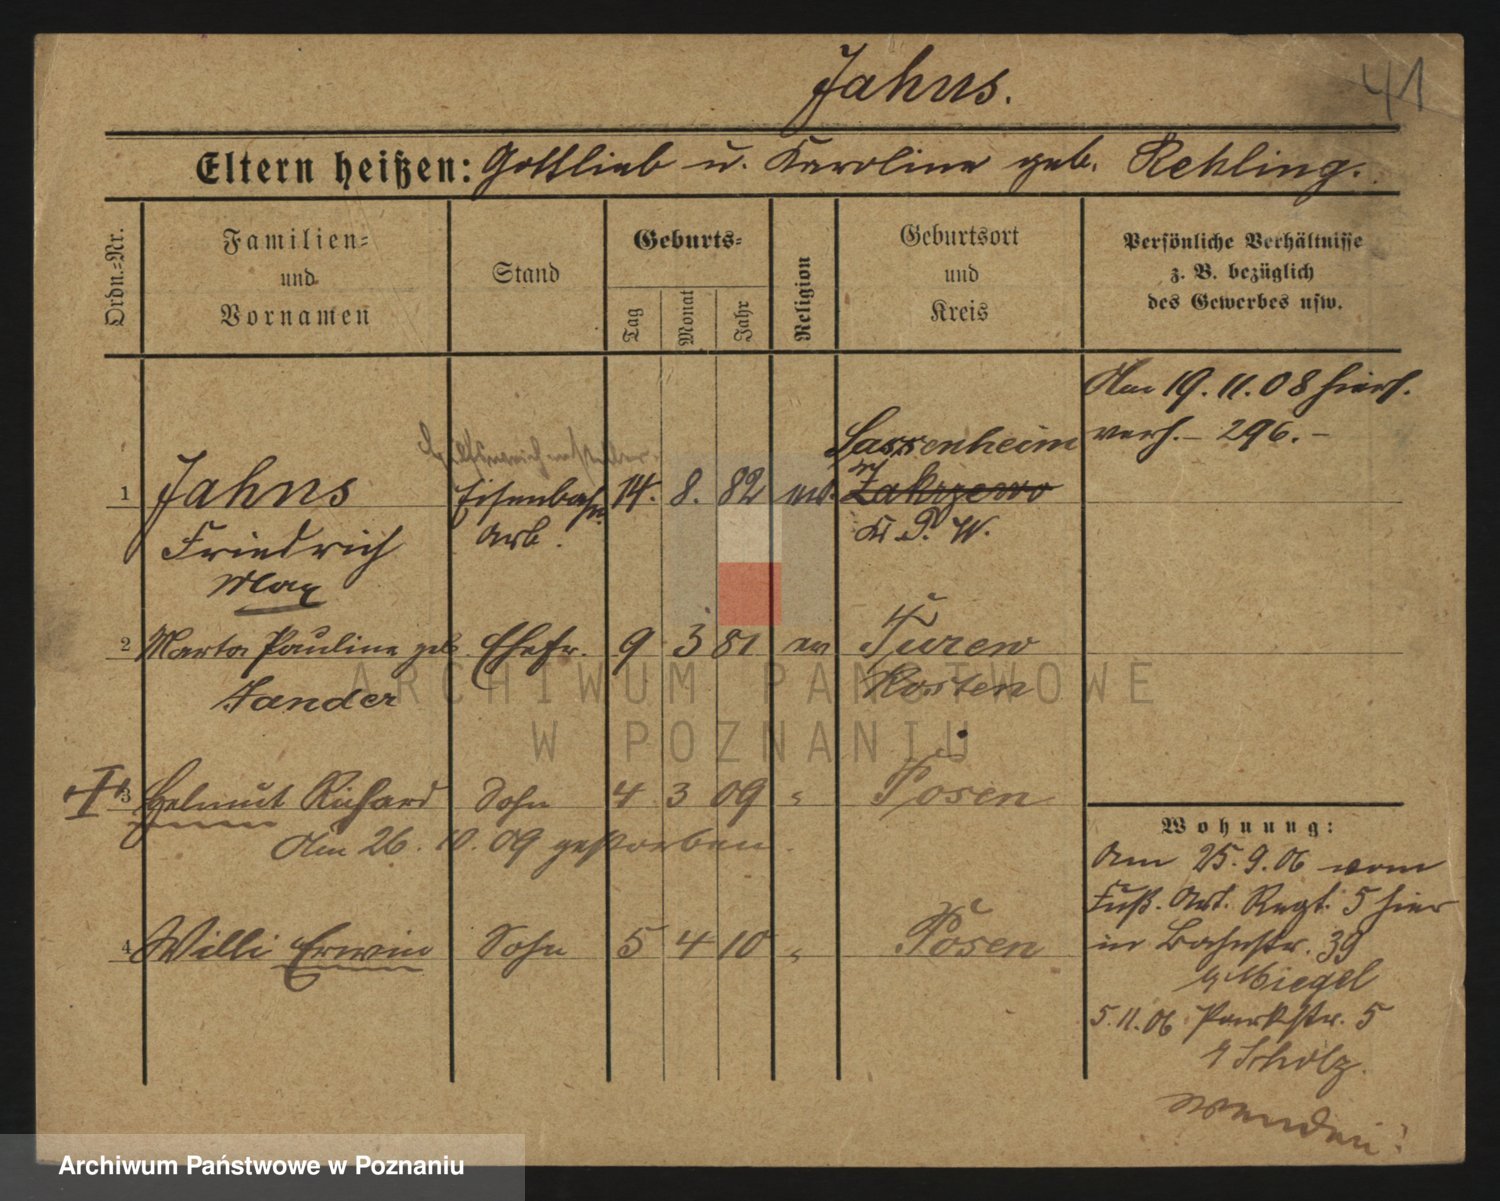 Jahns.
41
Eltern heißen: Gottlieb u. Karoline geb. Rehling.
Ordn.-Nr.
Familien-
und
Vornamen
Stand
Geburts-
Tag
Monat
Jahr
Religion
Geburtsort
und
Kreis
Persönliche Verhältnisse
z. B. bezüglich
des Gewerbes usw.
Am 19. 11. 08 hier
verh. – 296. –
Hilfsweichensteller
Sassenheim
1 Jahns Eisenbahn 14. 8. 82 ev. Zakrzewo
Friedrich Arb. Kr. P. W.
Max
2 Marta Pauline geb. Ehefr. 9 3 81 ev Turew
Sander Kosten
3 Helmut Richard Sohn 4 3 09 " Posen
Am 26. 10. 09 gestorben.
4 Willi Erwin Sohn 5 4 10 " Posen
Wohnung:
Am 25. 9. 06 vom
Fuß. Art. Regt. 5 hier
in Bahnstr. 39
Miegel
5. 11. 06 Parkstr. 5
Scholz.
wenden!
ARCHIWUM PAŃSTWOWE
W POZNANIU
Archiwum Państwowe w Poznaniu